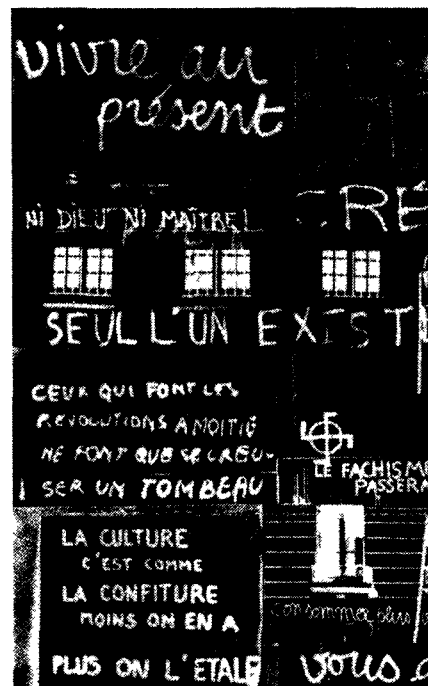 vivre au
présent
NI DIEU NI MAÎTRE
CRÉ
SEUL L'UN EXIST
CEUX QUI FONT LES
REVOLUTIONS A MOITIÉ
NE FONT QUE SE CREU-
SER UN TOMBEAU
LE FACHISME
PASSERA
LA CULTURE
C'EST COMME
LA CONFITURE
MOINS ON EN A
PLUS ON L'ETALE
consommez plus
vous